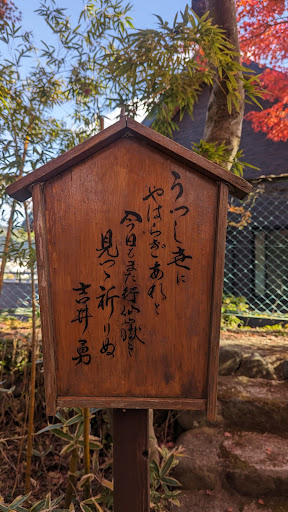 うつし世に
やはらぎあれと
今日もまた行仙嶽を
見つゝ祈りぬ
吉井 勇